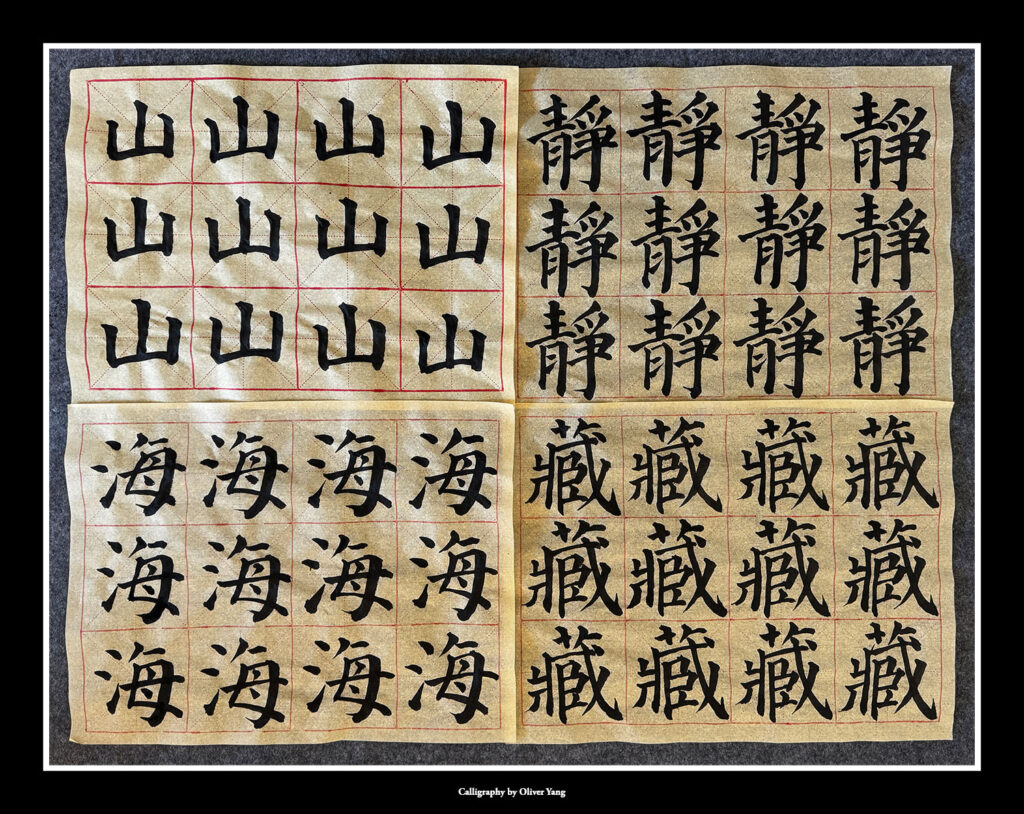 山山山山
山山山山
山山山山
靜靜靜靜
靜靜靜靜
靜靜靜靜
海海海海
海海海海
海海海海
藏藏藏藏
藏藏藏藏
藏藏藏藏
Calligraphy by Oliver Yang